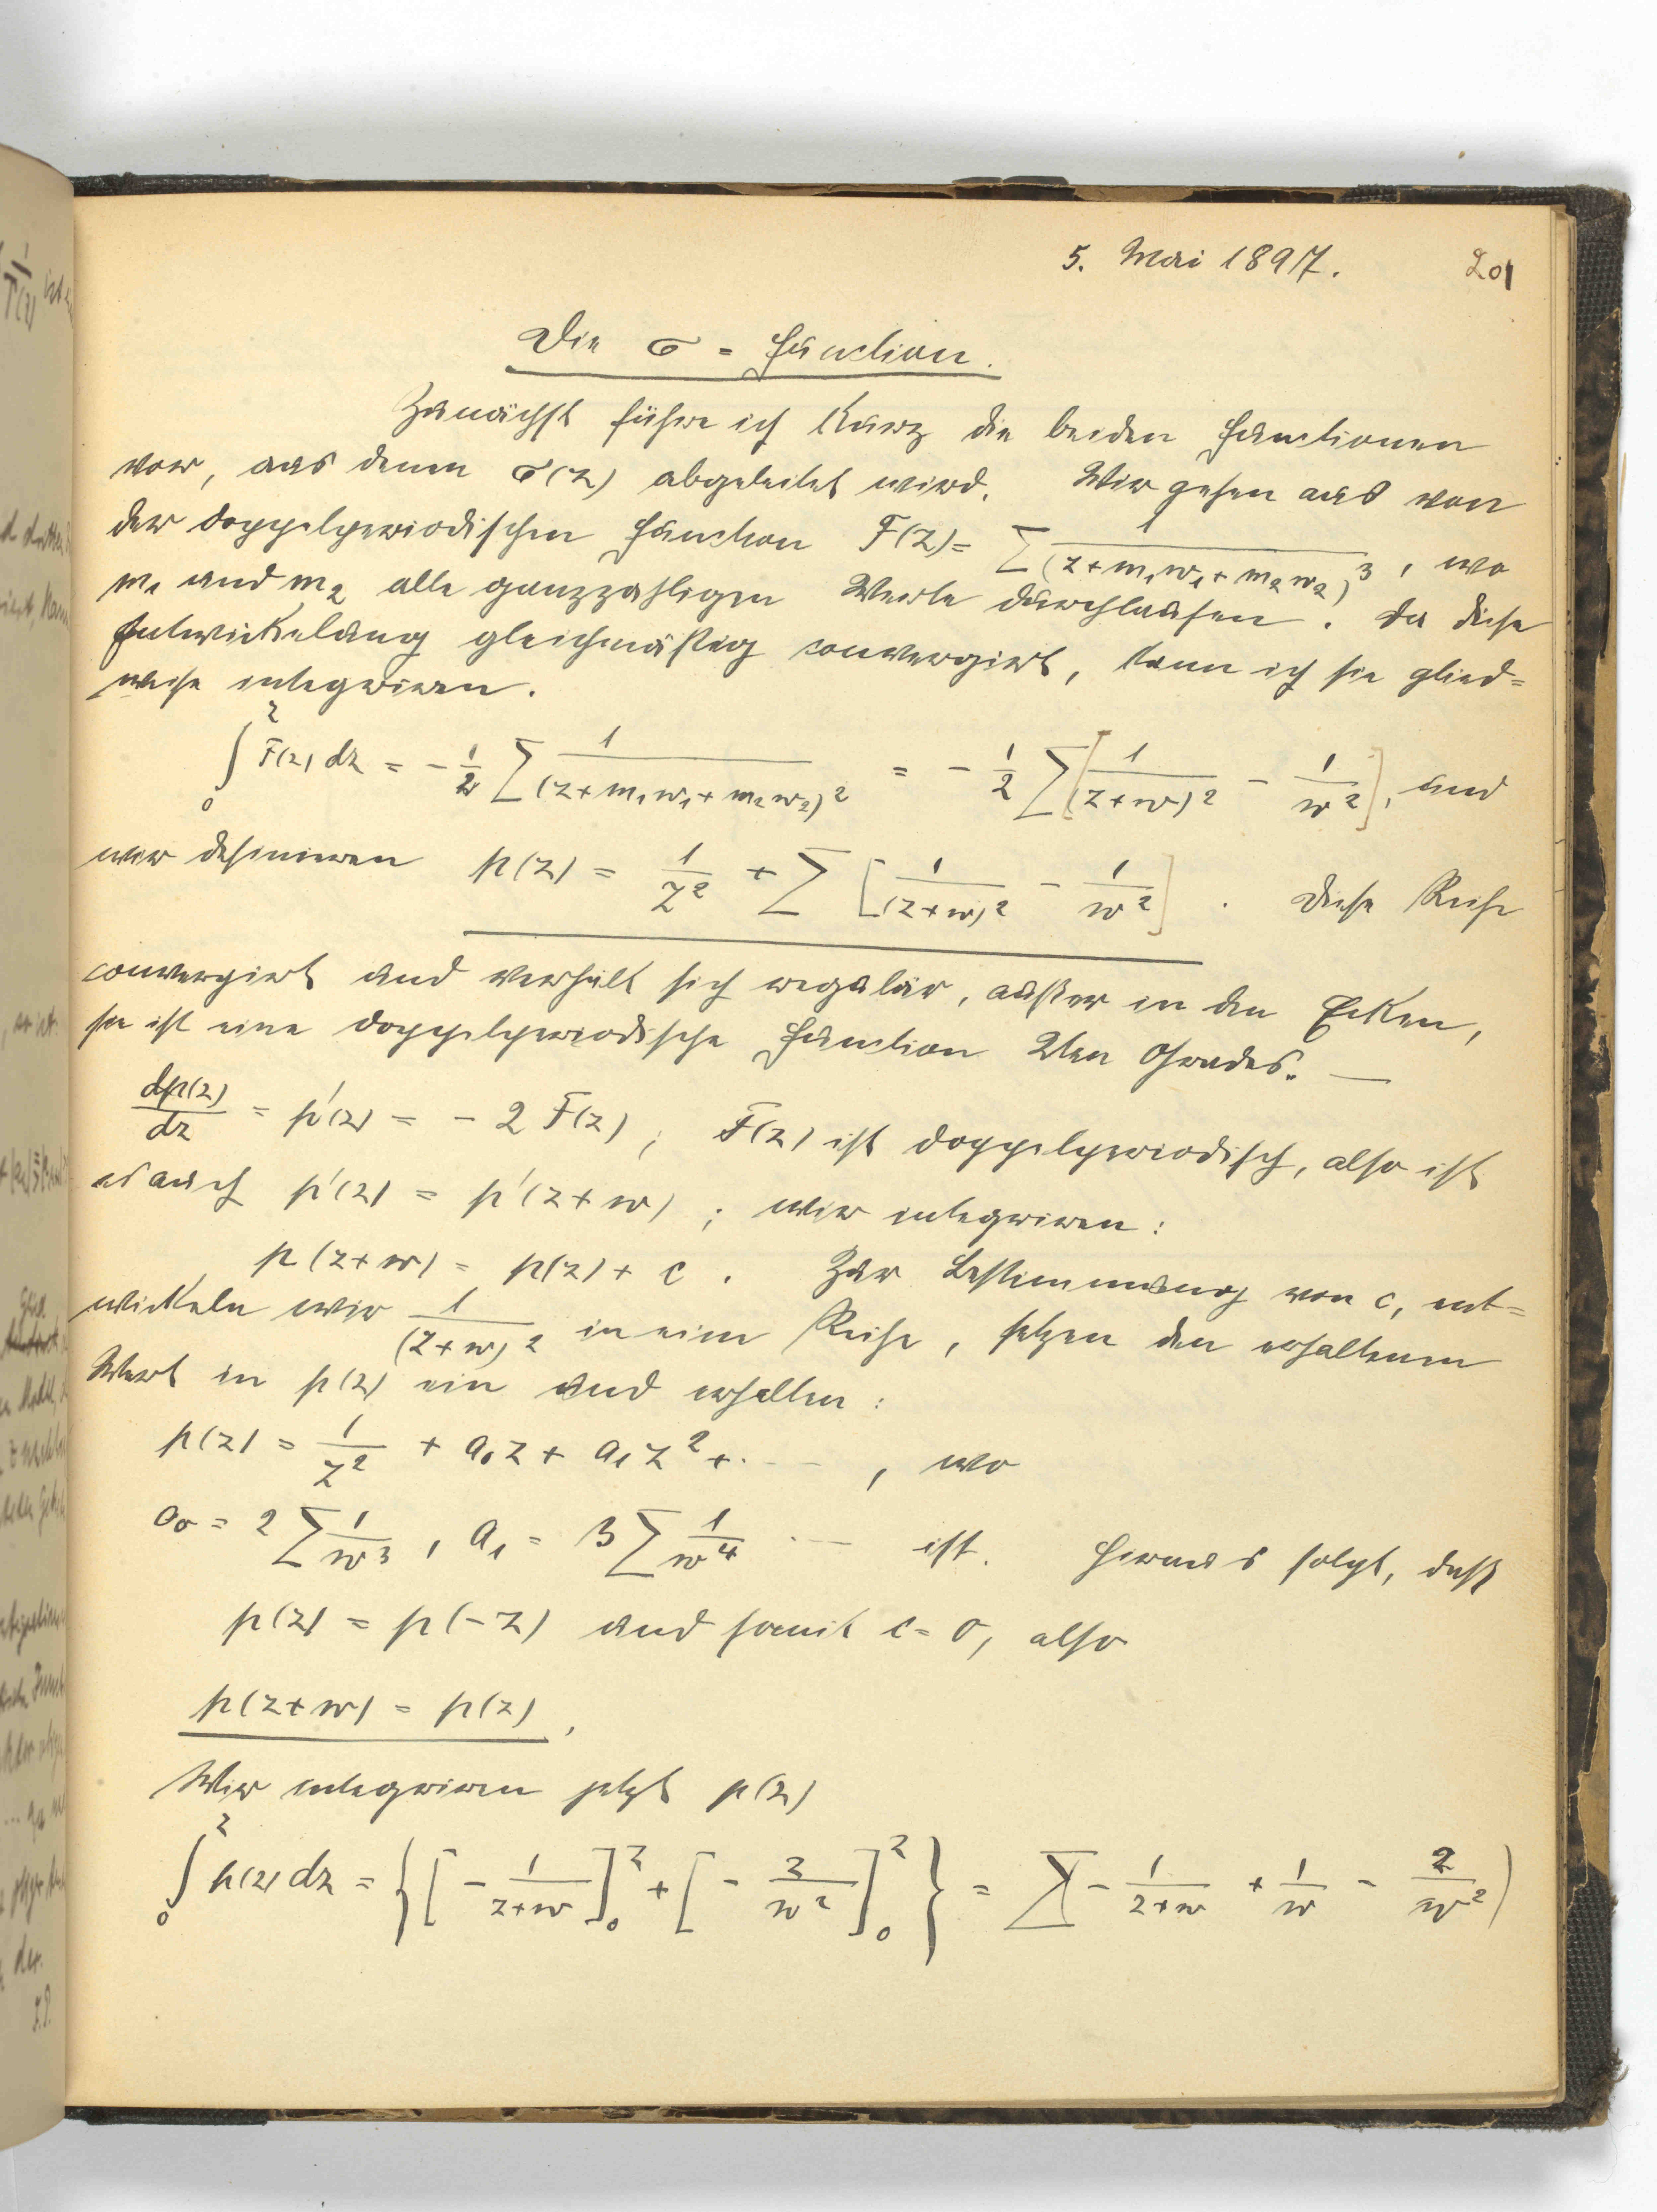 5. Mai 1897. 201
Die σ = Function.
Zunächst führe ich kurz die beiden Functionen
vor, aus denen σ(z) abgeleitet wird. Wir gehen aus von
der doppelperiodischen Function F(z) = ∑ 1/(z+m₁w₁+m₂w₂)³, wo
m₁ und m₂ alle ganzzahligen Werte durchlaufen. Da diese
Entwickelung gleichmäßig convergirt, kann ich sie glied=
weise integriren.
∫₀ᶻ F(z) dz = - 1/2 ∑ 1/(z+m₁w₁+m₂w₂)² = - 1/2 ∑ [1/(z+w)² - 1/w²], und
wir definiren p(z) = 1/z² + ∑ [1/(z+w)² - 1/w²]. Diese Reihe
convergirt und verhält sich regulär, außer in den Ecken,
sie ist eine doppelperiodische Function 2ten Grades. —
dp(z)/dz = p'(z) = - 2 F(z); F(z) ist doppelperiodisch, also ist
es auch p'(z) = p'(z+w); wir integriren:
p(z+w) = p(z) + c. Zur Bestimmung von c, ent=
wickeln wir 1/(z+w)² in eine Reihe, setzen den erhaltenen
Wert in p(z) ein und erhalten:
p(z) = 1/z² + a₀z + a₁z² + ..., wo
a₀ = 2 ∑ 1/w³, a₁ = 3 ∑ 1/w⁴ ... ist. Hieraus folgt, daß
p(z) = p(-z) und somit c = 0, also
p(z+w) = p(z),
Wir integriren jetzt p(z)
∫₀ᶻ p(z) dz = {[- 1/(z+w)]₀ᶻ + [- z/w²]₀ᶻ} = ∑(- 1/(z+w) + 1/w - z/w²)